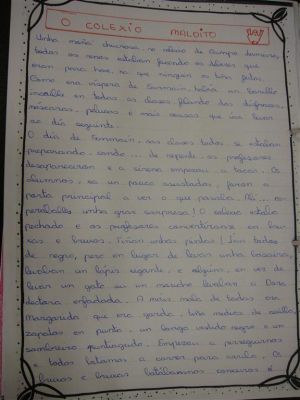 O COLEXIO MALDITO
Unha mañá chuviosa no colexio de Campo
todos os nenos estaban facendo os deberes que
eran para hoxe, xa que ninguén os tiña feitos.
Como era víspera de Samaín había un barullo
en todas as clases falando dos disfraces,
máscaras, pelucas e mais cousas que ían levar
ao día seguinte.
O día de Samaín, nas clases todos se estaban
preparando, cando... de repente os profesores
desapareceron e a sirena empezou a tocar. Os
alumnos, xa un pouco asustados, foron a
porta principal a ver o que pasaba. Alí
unha gran sorpresa! O colexio estaba
pechado e os profesores convertéranse en bru-
xas e bruxos. Tiñan unhas pintas! Ían todos
de negro, pero en lugar de levar unha basoira,
levaban un lápis xigante, e algúns, en vez de
levar un gato ou un moucho levaban a
directora enfadada. A mais mala de todas era
Margarida que era gorda, tiña medias de
zapatos en punta, un longo vestido negro e un
sombreiro puntiagudo. Empezou a perseguirnos
e todos botamos a correr para Os
bruxos e bruxas